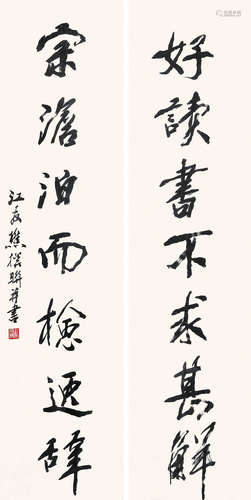 好讀書不求甚解
宗澹泊而檢辭
江樵聯并書